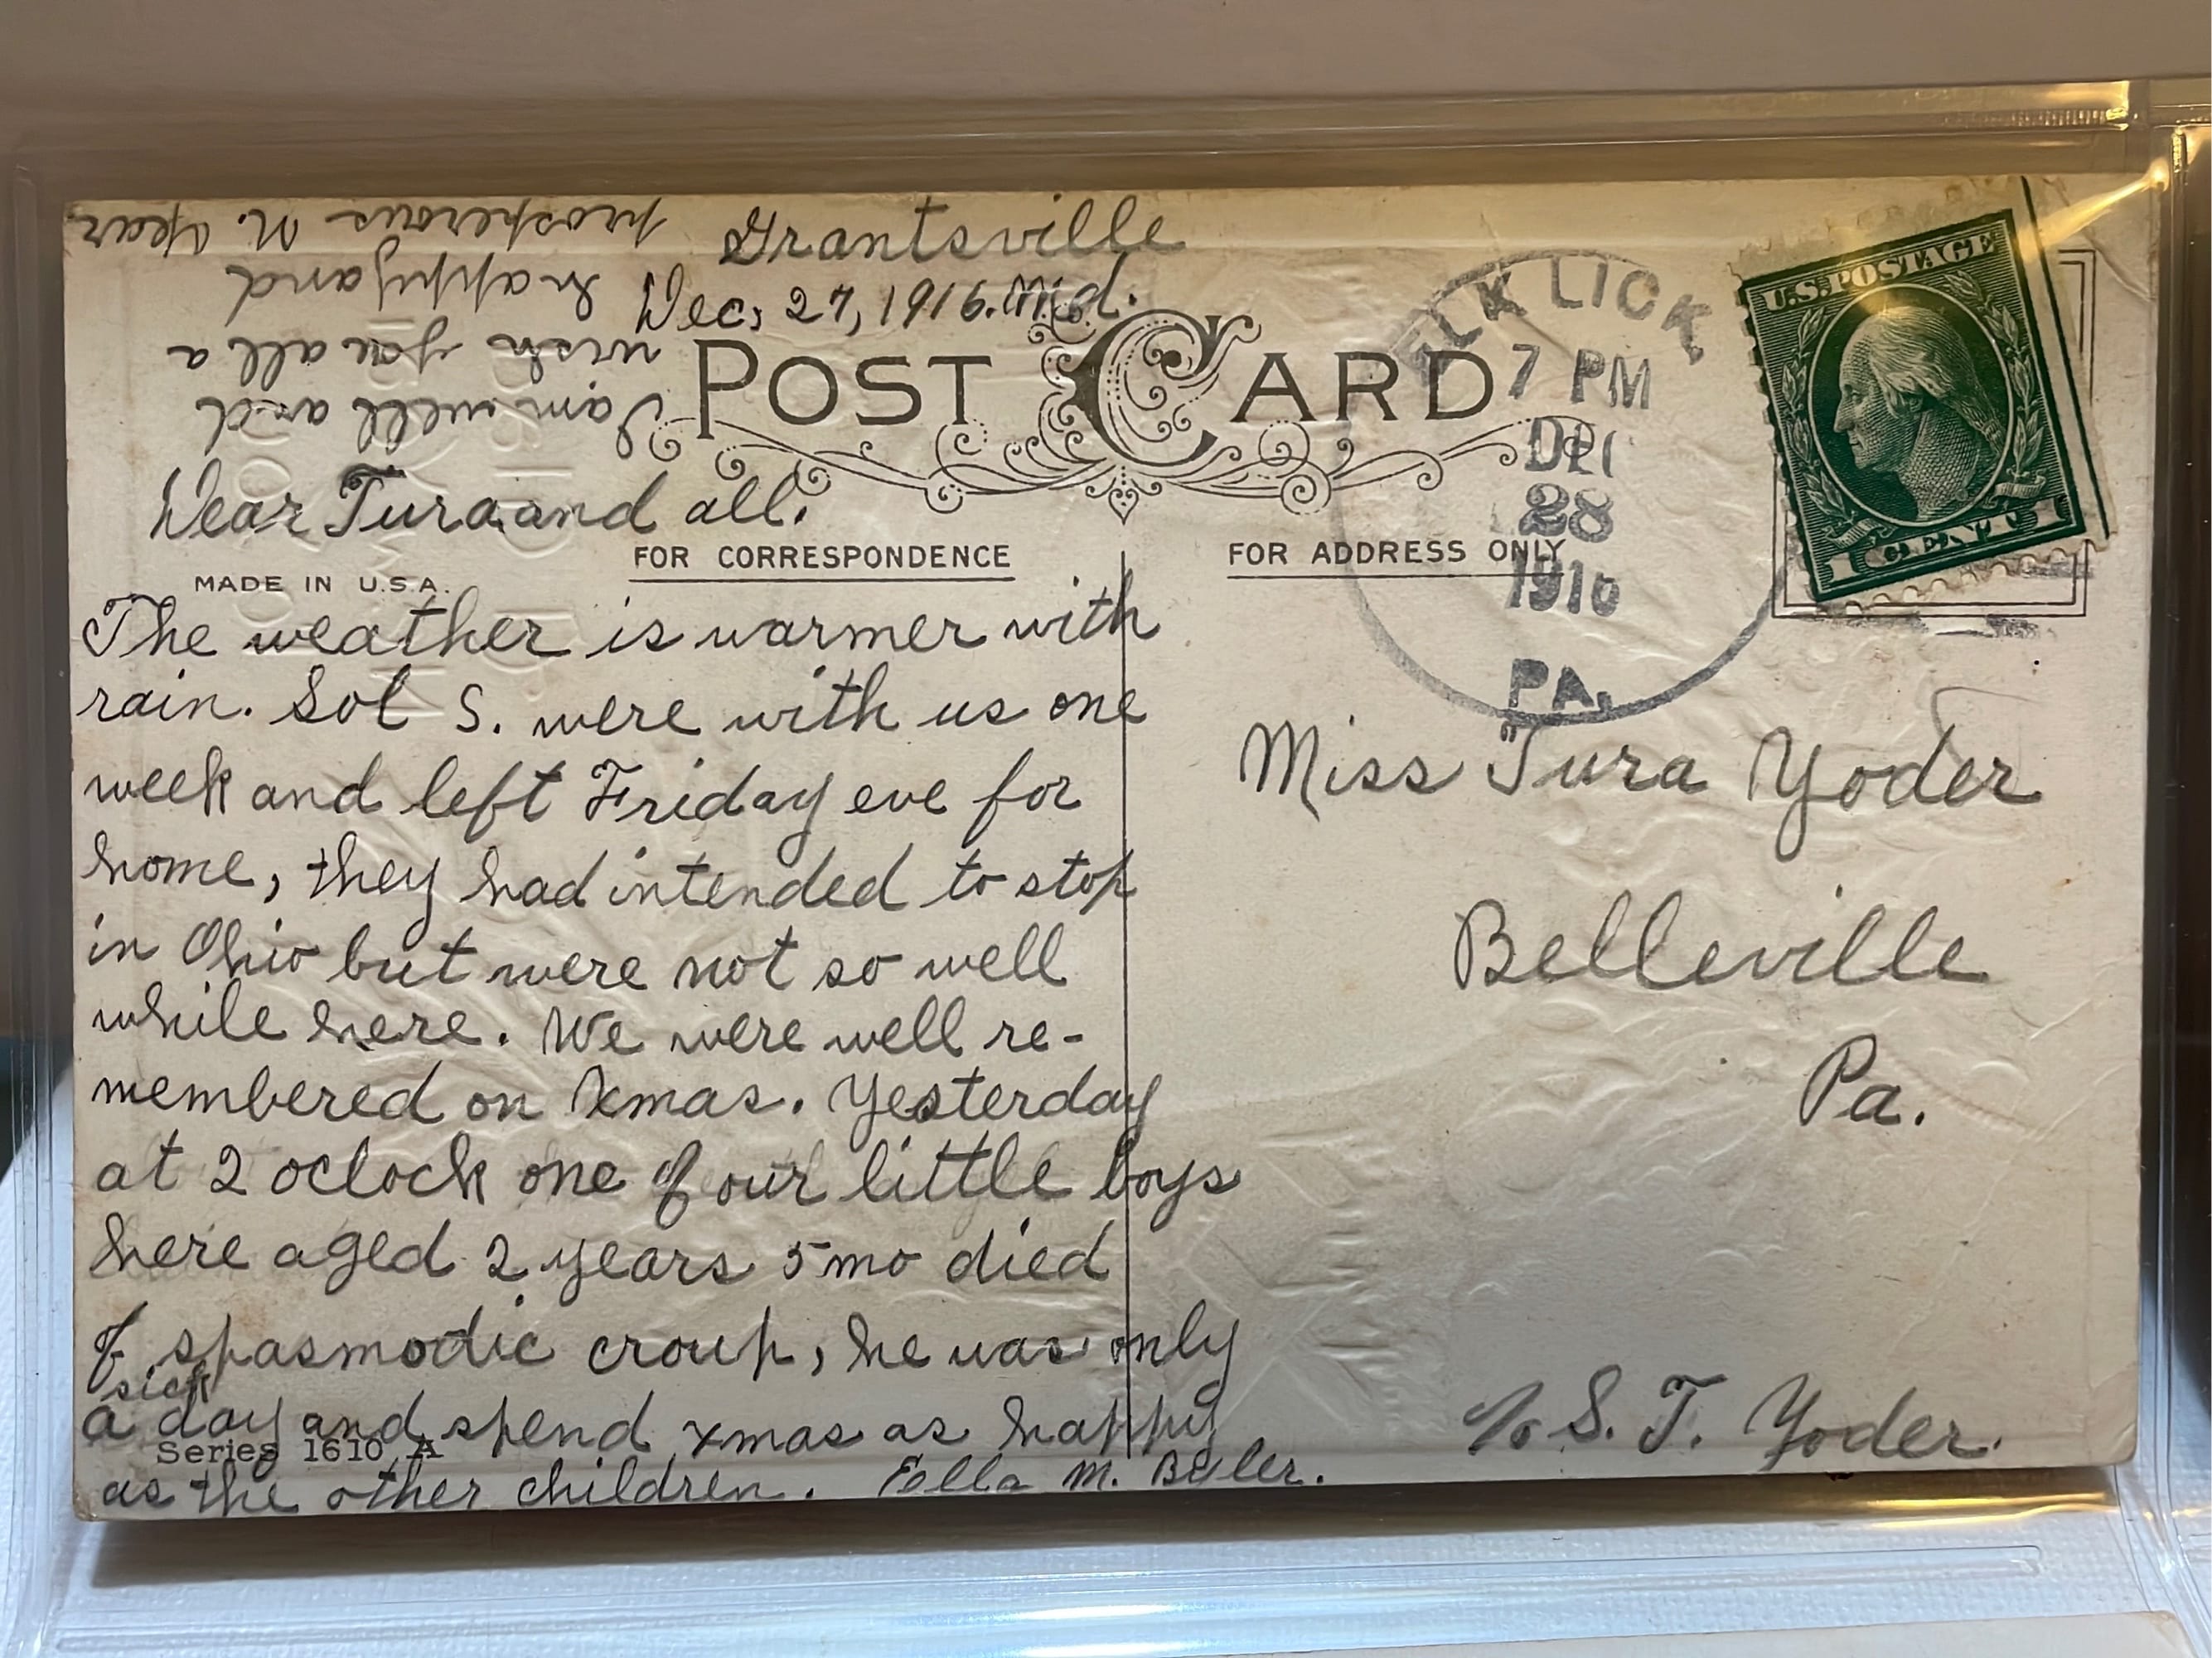 Grantsville
Dec. 27, 1916. Md.
POST CARD
Dear Tura and all.
FOR CORRESPONDENCE
MADE IN U.S.A.
The weather is warmer with
rain. Sol S. were with us one
week and left Friday eve for
home, they had intended to stop
in Ohio but were not so well
while here. We were well re-
membered on Xmas. Yesterday
at 2 oclock one of our little boys
here aged 2 years 5 mo died
of spasmodic croup, he was only
sick
a day and spend xmas as happy
Series 1610 A
as the other children. Ella M. Beiler.
I am well and
wish you all a
happy and
prosperous N. Year
FOR ADDRESS ONLY
ELK LICK
7 PM
DEC
28
1916
PA.
U.S. POSTAGE
1 CENT 1
Miss Tura Yoder
Belleville
Pa.
c/o S. T. Yoder.